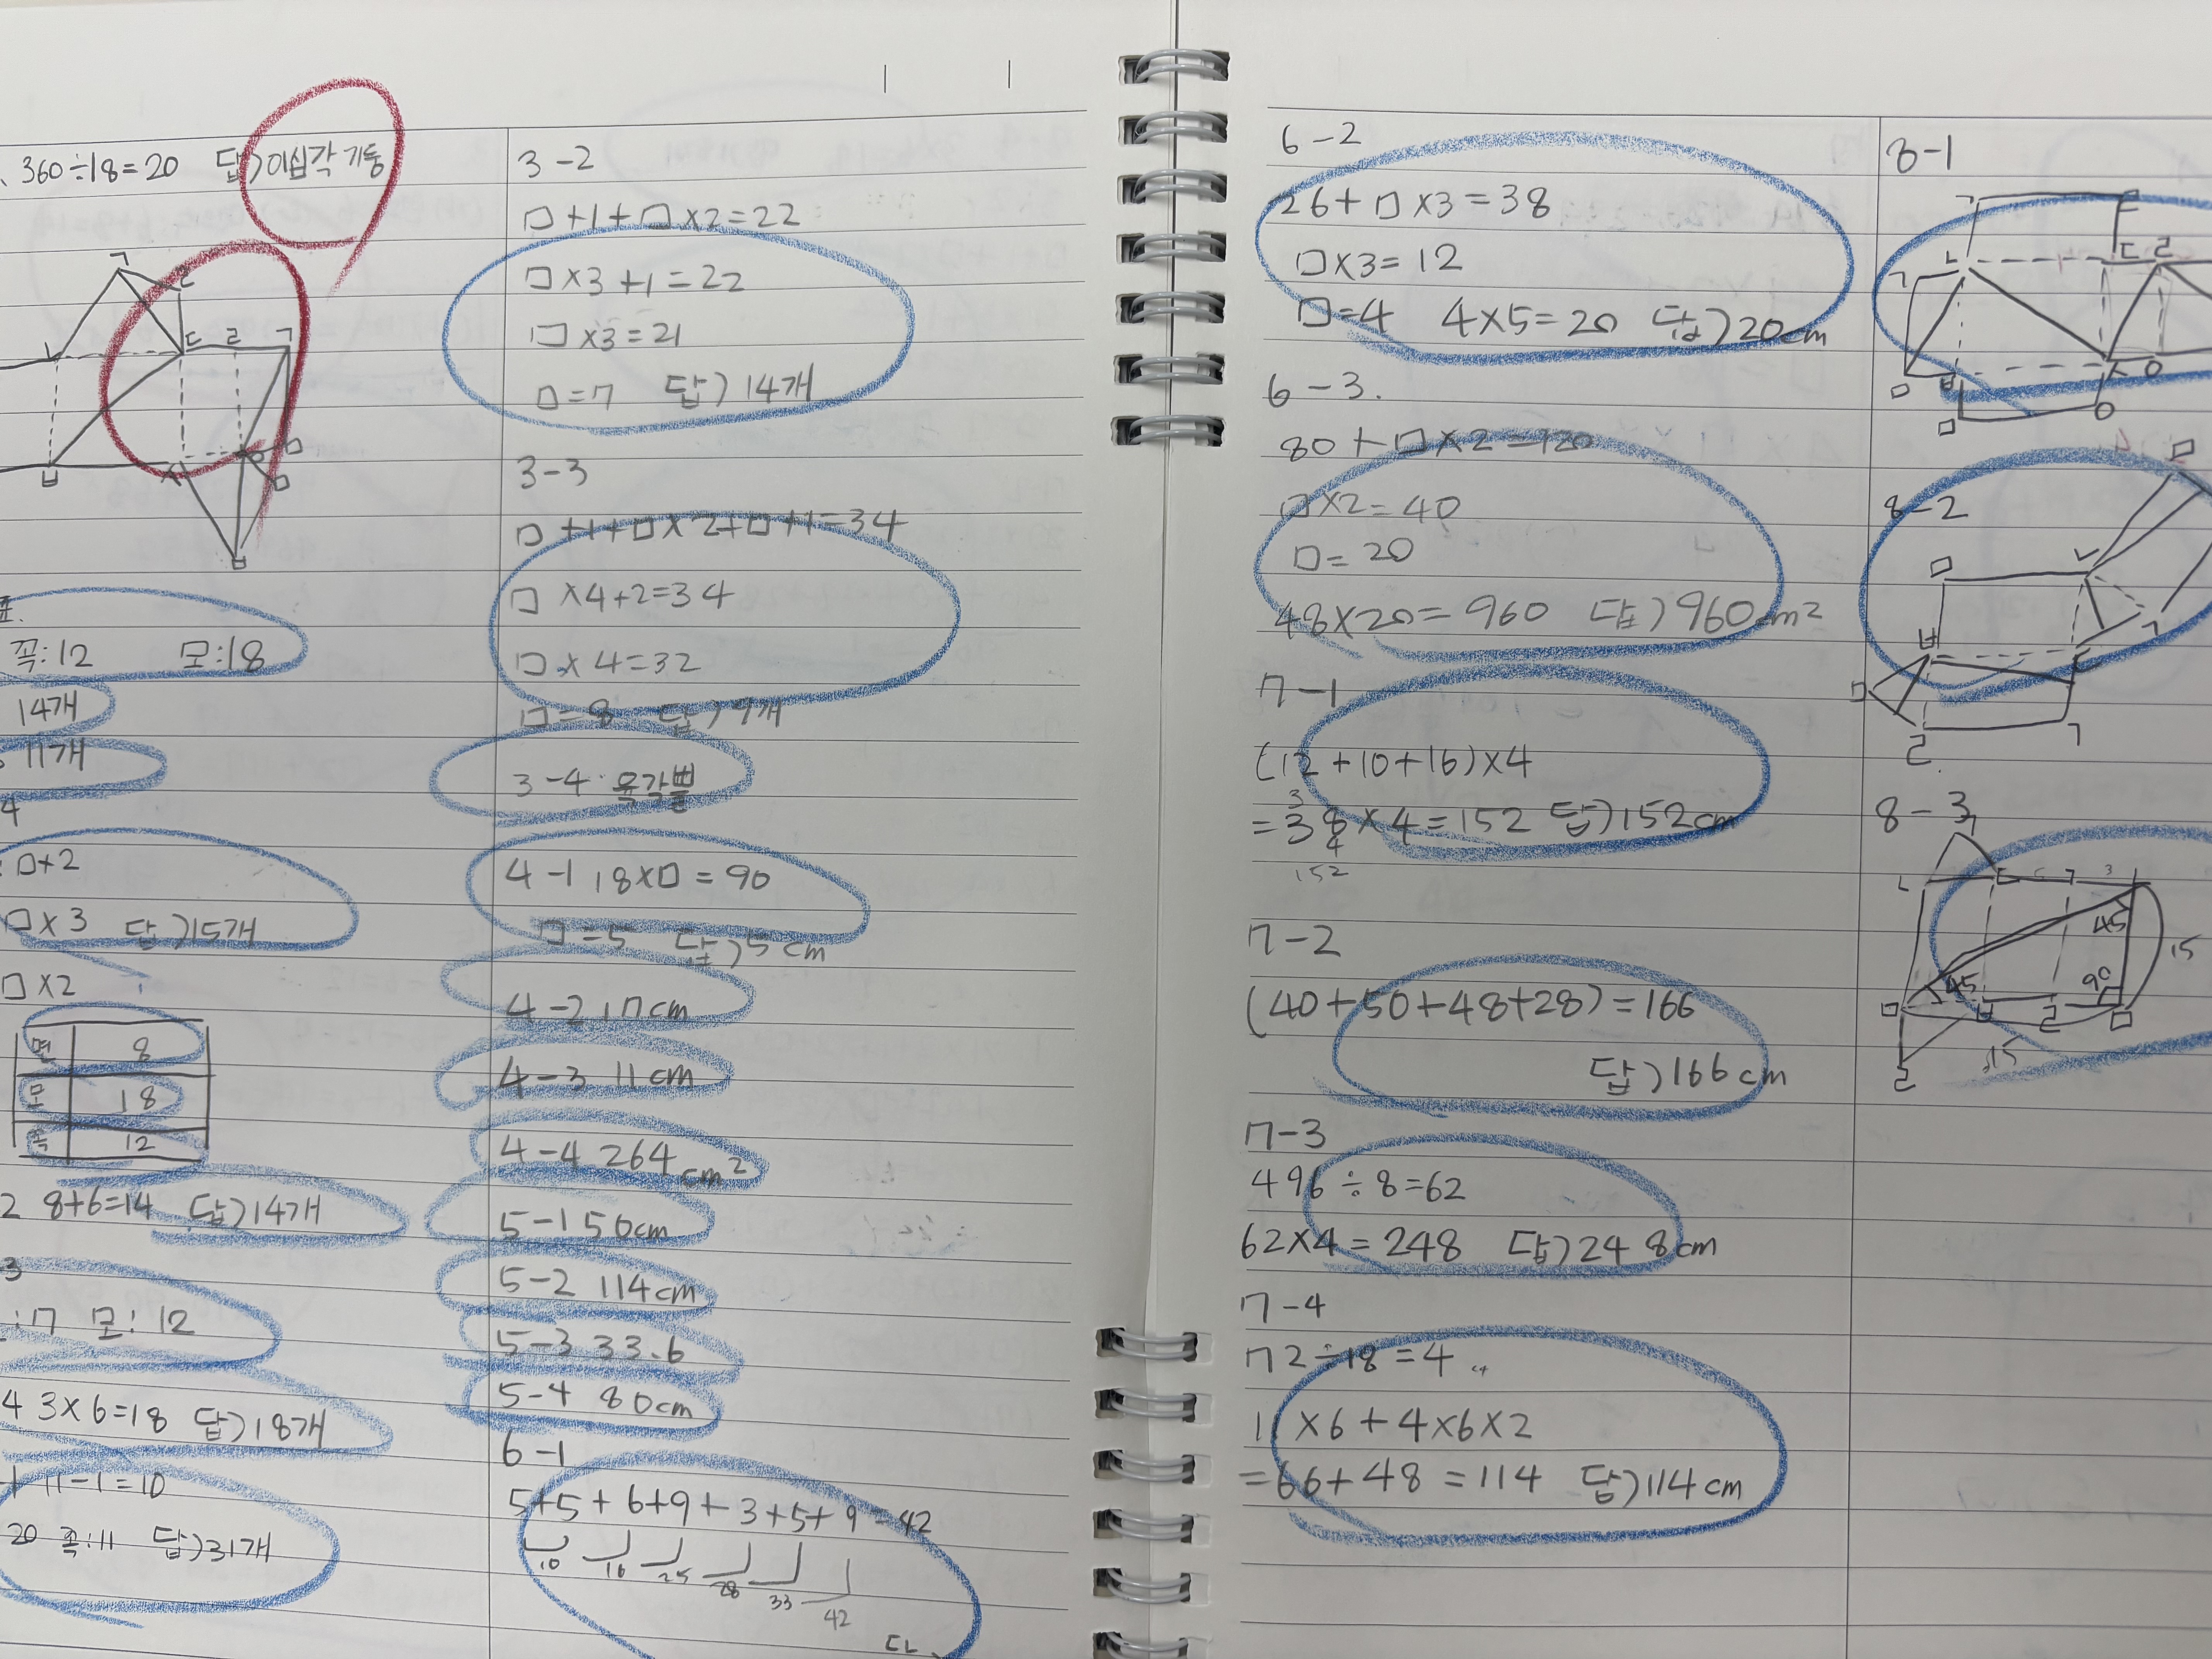 360÷18=20 답)이십각기둥
ㄱ
ㄹ
ㄴ
ㄷ ㄹ ㄱ
ㅂ
ㅅ
ㅁ
ㅁ
ㅂ
꼭:12 모:18
14개
11개
4
□+2
□×3 답)15개
□×2
면 8
모 18
꼭 12
2 8+6=14 답)14개
3
:7 모:12
4 3×6=18 답)18개
11-1=10
20 꼭:11 답)31개
3-2
□+1+□×2=22
□×3+1=22
□×3=21
□=7 답)14개
3-3
□+1+□×2+□+1=34
□×4+2=34
□×4=32
□=8 답)9개
3-4. 육각뿔
4-1 18×□=90
□=5 답)5cm
4-2 17cm
4-3 11cm
4-4 264cm²
5-1 50cm
5-2 114cm
5-3 33.6
5-4 80cm
6-1
5+5+6+9+3+5+9=42
10 16 25 28 33 42
6-2
26+□×3=38
□×3=12
□=4 4×5=20 답)20cm
6-3.
80+□×2=120
□×2=40
□=20
48×20=960 답)960cm²
7-1
(12+10+16)×4
=38×4=152 답)152cm
3
4
152
7-2
(40+50+48+28)=166
답)166cm
7-3
496÷8=62
62×4=248 답)248cm
7-4
72÷18=4
11×6+4×6×2
=66+48=114 답)114cm
8-1
ㄱ
ㄴ ㄷ ㄹ
ㄱ
ㅁ ㅂ ㅅ ㅇ
ㅁ ㅇ
8-2
ㅁ
ㅁ ㄴ
ㄱ
ㅂ ㄷ
ㅁ
ㄹ ㄱ
8-3
ㄱ
ㄴ ㄷ ㄱ 3
45
15
45 90
ㅁ ㅂ ㄹ ㅁ
15
ㄹ